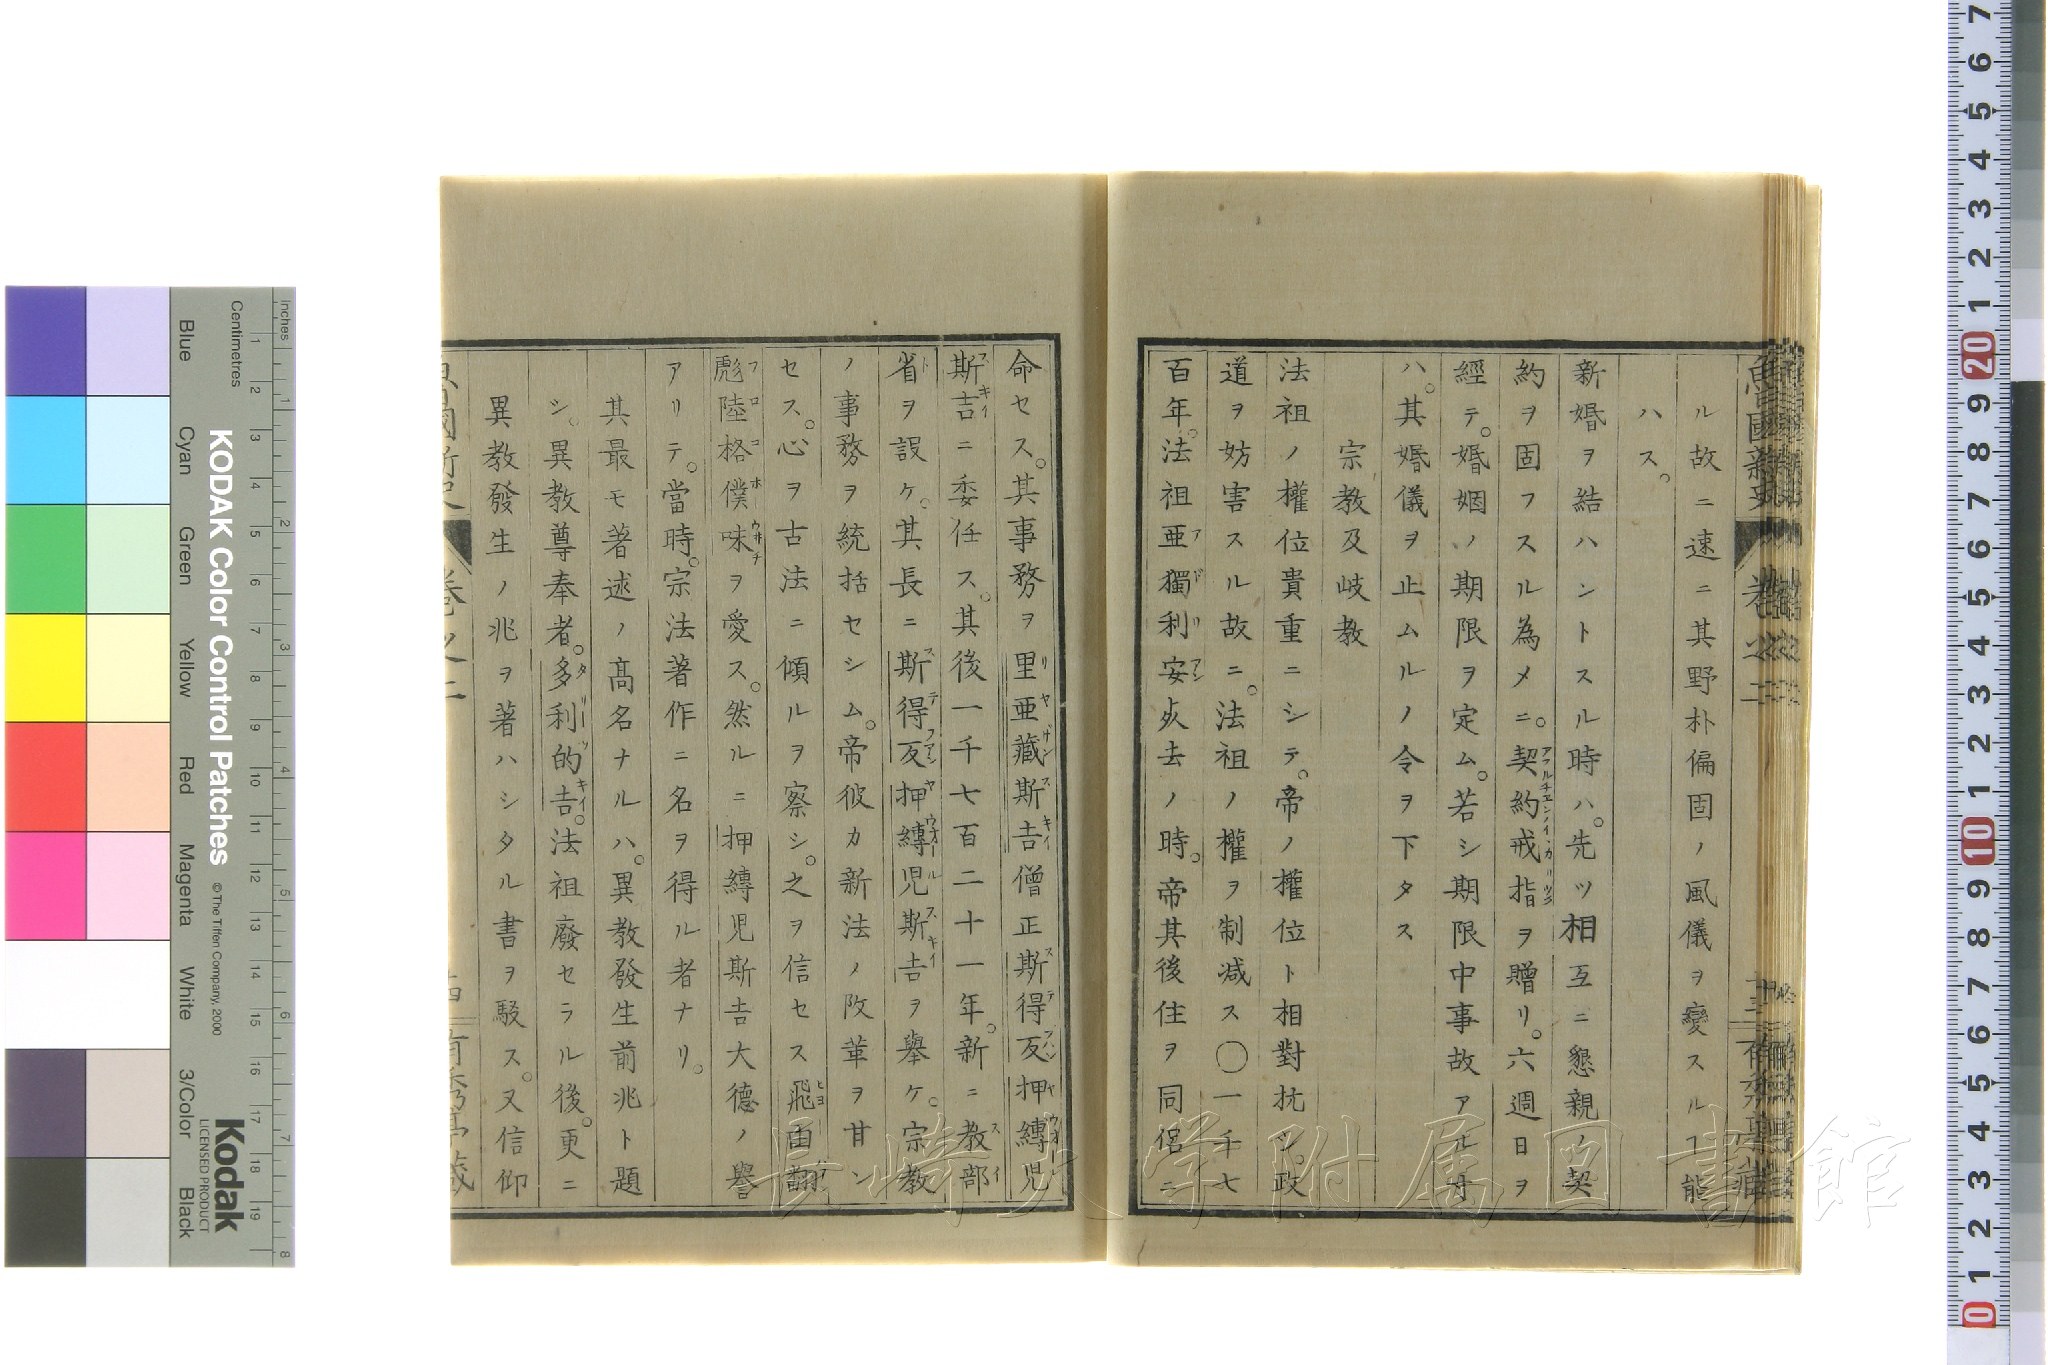 ル故ニ速ニ其野朴偏固ノ風儀ヲ變スルヿ能
ハス。
新婚ヲ結ハントスル時ハ。先ツ相互ニ懇親ノ契
約ヲ固フスル為メニ。契約戒指ヲ贈リ。六週日ヲ
經テ。婚姻ノ期限ヲ定ム。若シ期限中事故アル寸
ハ。其婚儀ヲ止ムルノ令ヲ下タス
宗教及歧教
法祖ノ權位貴重ニシテ。帝ノ權位ト相對抗シ。政
道ヲ妨害スル故ニ。法祖ノ權ヲ制減ス〇一千七
百年。法祖亜獨利安死去ノ時。帝其後住ヲ同侶ニ
命セス。其事務ヲ里亜藏斯吉僧正斯得反押縳児
斯吉ニ委任ス。其後一千七百二十一年。新ニ教部
省ヲ設ケ。其長ニ斯得反押縳児斯吉ヲ舉ケ。宗教
ノ事務ヲ統括セシム。帝彼カ新法ノ改革ヲ甘ン
セス。心ヲ古法ニ傾ルヲ察シ。之ヲ信セス飛由翻
彪陸格僕味ヲ愛ス。然ルニ押縳児斯吉大德ノ譽
アリテ。當時。宗法著作ニ名ヲ得ル者ナリ。
其最モ著述ノ髙名ナルハ。異教發生前兆ト題
シ。異教尊奉者。多利的吉。法祖廢セラル後。更ニ
異教發生ノ兆ヲ著ハシタル書ヲ駁ス。又信仰
魯國新史 卷之二
長崎大学附属図書館
KODAK Color Control Patches
© The Tiffen Company, 2000
Kodak
LICENSED PRODUCT
Centimetres
Inches
Blue
Cyan
Green
Yellow
Red
Magenta
White
3/Color
Black